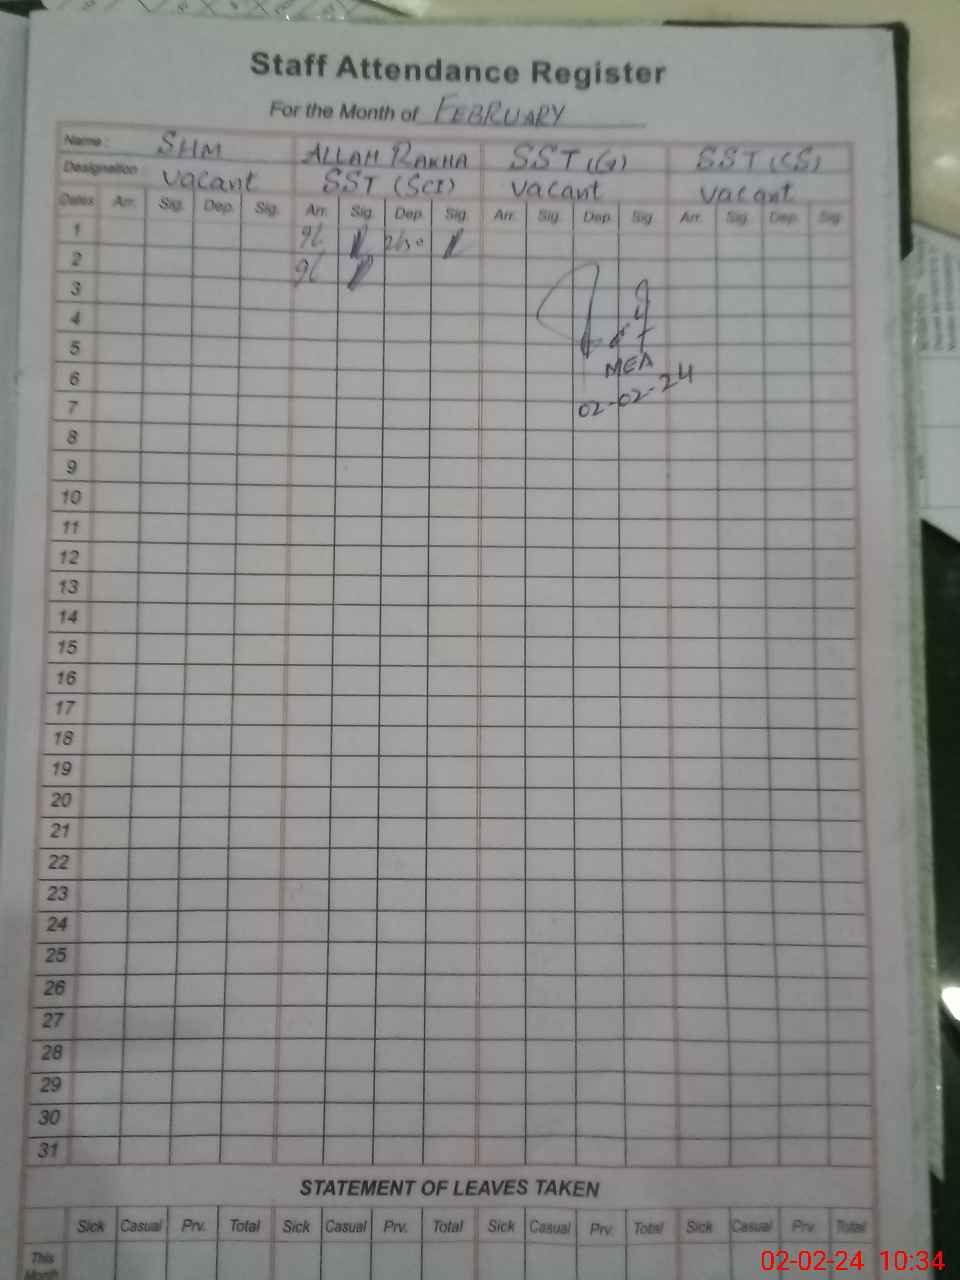 Staff Attendance Register
For the Month of FEBRUARY
Name : SHM ALLAH RAKHA SST (G) SST (CS)
Designation vacant SST (SCI) vacant vacant
Dates Arr. Sig. Dep. Sig. Arr. Sig. Dep. Sig. Arr. Sig. Dep. Sig. Arr. Sig. Dep. Sig.
1
2
3
4
5
6
7
8
9
10
11
12
13
14
15
16
17
18
19
20
21
22
23
24
25
26
27
28
29
30
31
MEA
02-02-24
STATEMENT OF LEAVES TAKEN
Sick Casual Prv. Total Sick Casual Prv. Total Sick Casual Prv. Total Sick Casual Prv. Total
This
Month
02-02-24 10:34